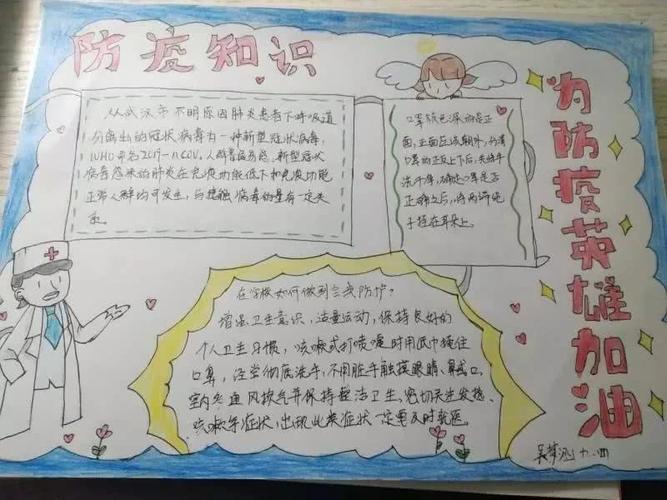 防疫知识
从武汉市不明原因肺炎患者下呼吸道
分离出的冠状病毒为一种新型冠状病毒,
WHO命名2019-nCOV。人群普遍易感。新型冠状
病毒感染的肺炎在免疫功能低下和免疫功能
正常人群均可发生,与接触病毒的量有一定关
系。
口罩颜色深的是正
面,正面应该朝外,
口罩的正反上下后,先将手
洗干净,确定口罩是否
正确之后,将两端绳
子挂在耳朵上。
为防疫英雄加油
在学校如何做到 防护?
增强卫生意识,适量运动,保持良好的
个人卫生习惯,咳嗽或打喷嚏时用纸巾掩住
口鼻,经常彻底洗手,不用脏手触摸眼睛、鼻或口。
室内 通风换气并保持整洁卫生,密切关注发热、
咳嗽等症状,出现此类症状一定要及时就医。